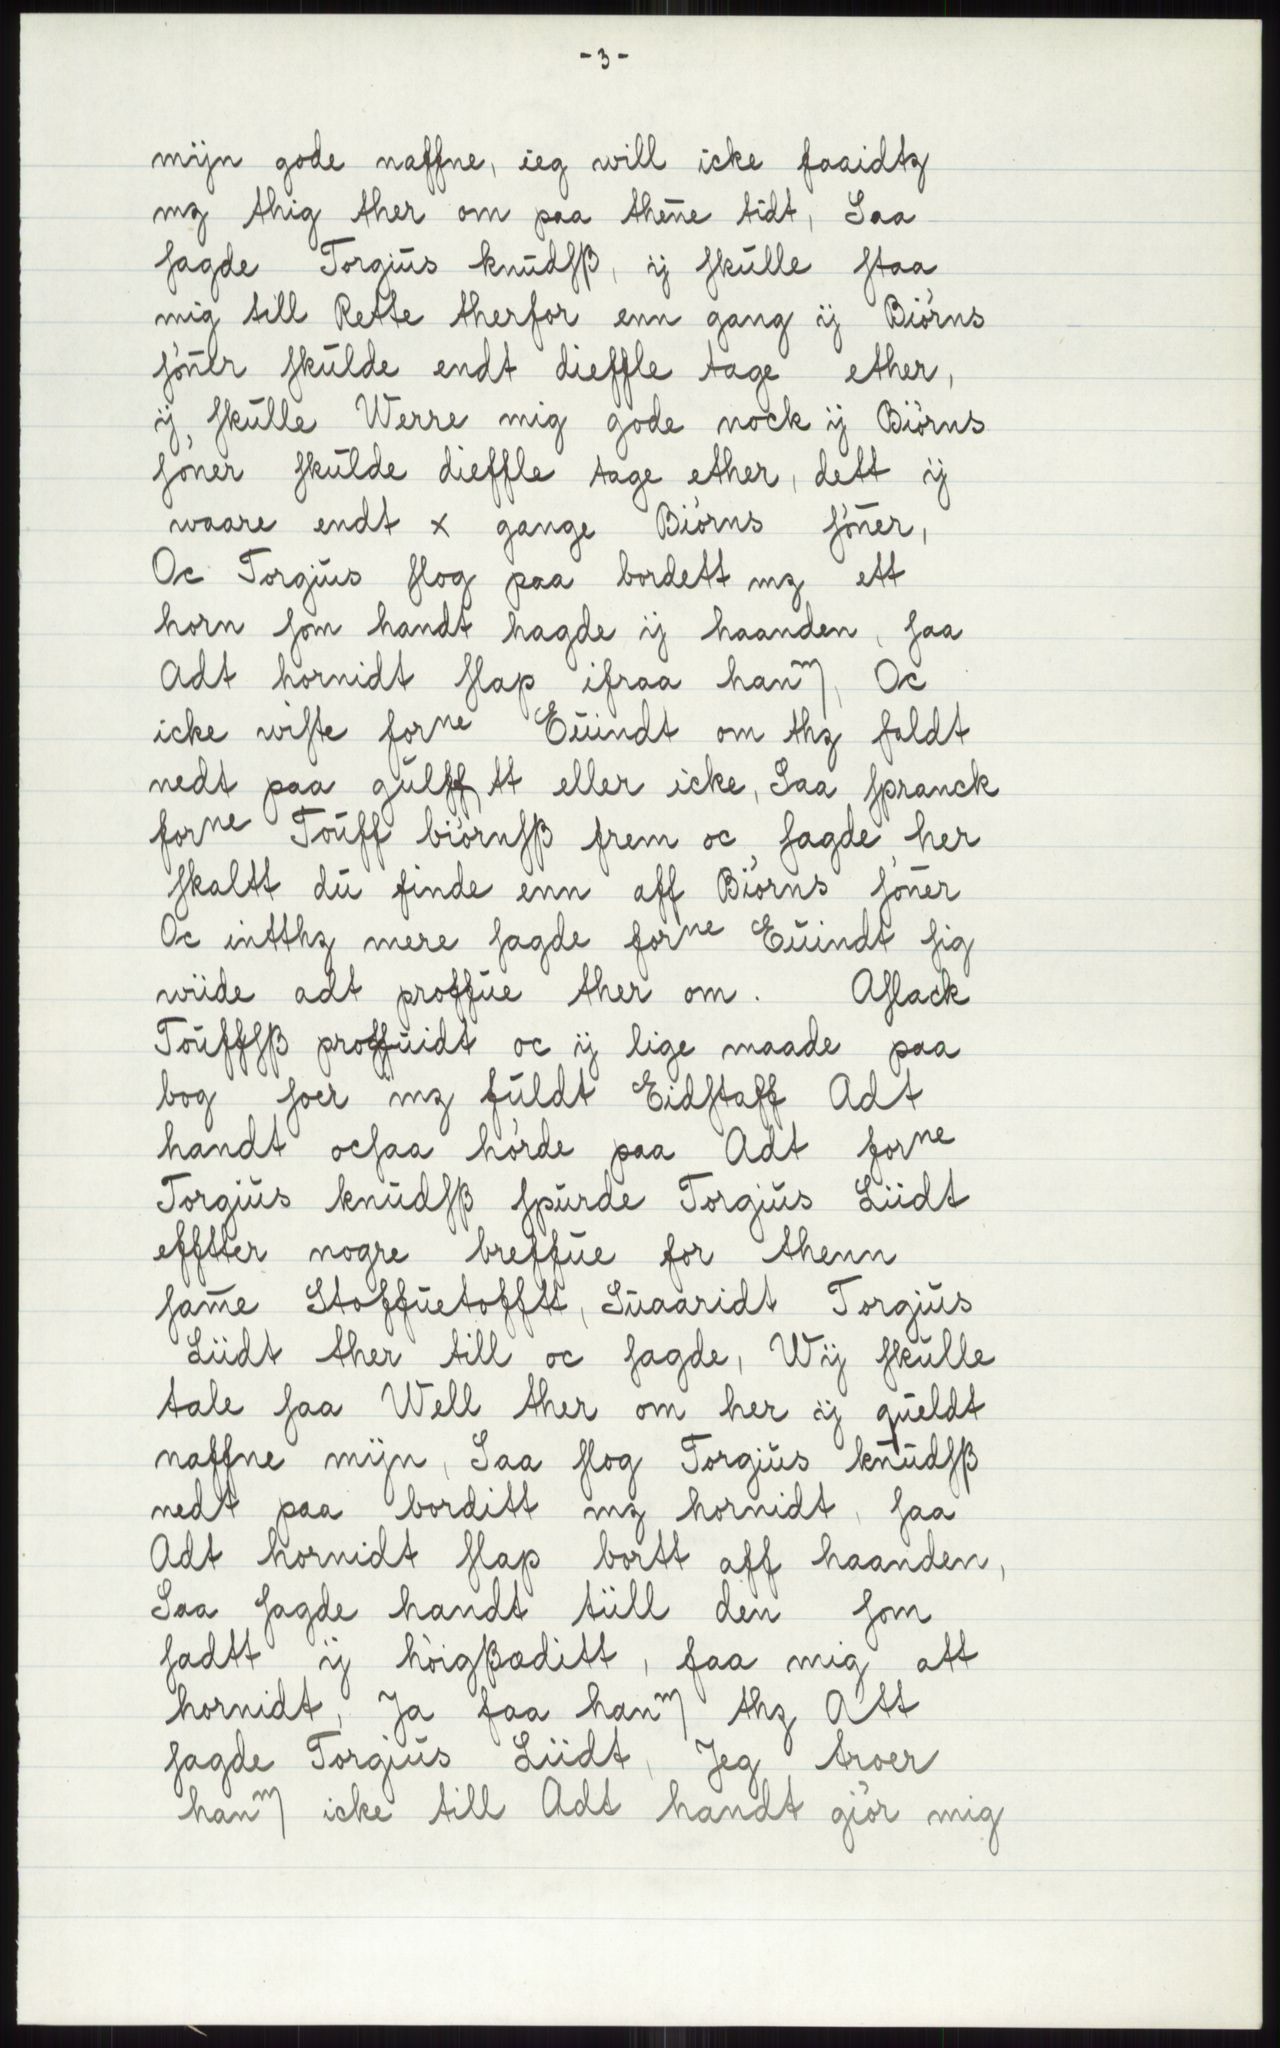 - 3 -
mijn gode naffne, ieg will icke faaidtz
mz thig ther om paa then̄e tidt, Saa
sagde Torgiŭs knŭdsß, ij skŭlle staa
mig till Rette therfor enn gang ij Biórns
són̄er skŭlde endt dieffle tage ether,
ij skŭlle Werre mig gode nock ij Biórns
sóner skŭlde dieffle tage ether, dett ij
waare endt x gange Biórns són̄er,
Oc Torgiŭs slog paa bordett mz ett
horn som handt hagde ij haanden, saa
Adt hornidt slap ifraa hanm, Oc
icke wiste forne Eŭindt om thz faldt
nedt paa gŭlfftt eller icke, Saa spranck
forne Toŭff biórnsß frem oc sagde her
skaltt dŭ finde enn aff Biórns són̄er
Oc intthz mere sagde forne Eŭindt sig
wiide adt proffŭe ther om. Aslack
Toŭffsß proffŭidt oc ij lige maade paa
bog soer mz fŭldt Eidstaff Adt
handt ocsaa hórde paa Adt forne
Torgiŭs knŭdsß spŭrde Torgiŭs Liidt
efftter nogre breffŭe for thenn
sam̄e Stoffŭetofftt, Sŭaaridt Torgiŭs
Liidt ther till oc sagde, Wij skŭlle
tale saa Well ther om her ij qŭeldt
naffne mijn, Saa slog Torgiŭs knŭdsß
nedt paa borditt mz hornidt, saa
Adt hornidt slap bortt aff haanden,
Saa sagde handt tiill den som
sadtt ij hóigßæditt, faa mig att
hornidt, Ja faa hanm thz Att
sagde Torgiŭs Liidt, Jeg troer
hanm icke till Adt handt giór mig